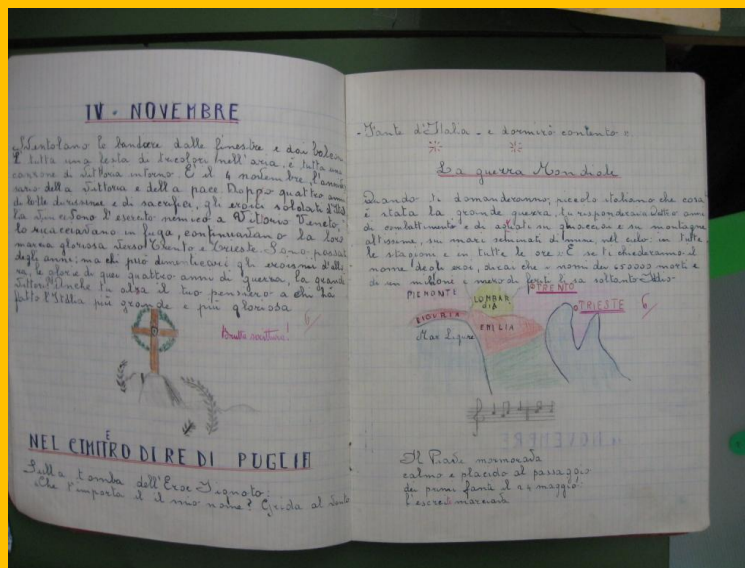 IV - NOVEMBRE
Sventolano le bandere dalle finestre e dai balconi
È tutta una festa di tricolori nell'aria, è tutta una
canzone di Vittoria intorno È il 4 novembre, l'anni
sario della Vittoria e della pace Doppo quattro anni
di lotte durissime e di sacrifici, gli eroici soldati d'Italia
la l'esercito nemico a Vittorio Veneto,
lo ricacciavano in fuga, continuavano la loro
marcia gloriosa verso Trento e Trieste. Sono passati
degli anni: ma chi può dimenticarci gli eroismi d'allo
ra, le glorie di quei quattro anni di guerra, la grande
Vittoria! Anche tu alsa il tuo pensiero a chi ha
fatto l'Italia più grande e più gloriosa
6
Brutta scrittura!
NEL CIMITRO DI RE DI PUGLIA
É
Sulla tomba dell'Eroe Ignoto:
Che t'importa il mio nome? Grida al vento
- Fante d'Italia - e dormirò contento
La guerra Mondiale
Quando ti domanderanno, piccolo italiano che cosa
è stata la grande guerra, tu risponderai: quattro anni
di combattimenti e di su ghiacciai e su montagne
altissime, su mari seminati di mine, nel cielo in tutte
le stagioni e in tutte le ore. E se ti chiederanno il
nome degli eroi, dirai che i nomi dei 650000 morti e
di un milione e mezzo di feriti li sa soltanto Iddio
6
PIEMONTE
LOMBAR
DIA
TRENTO
TRIESTE
LIGURIA
EMILIA
Mar Ligure
Il Piave mormorava
calmo e placido al passaggio
dei primi fanti il 24 maggio
l'esercito marciava